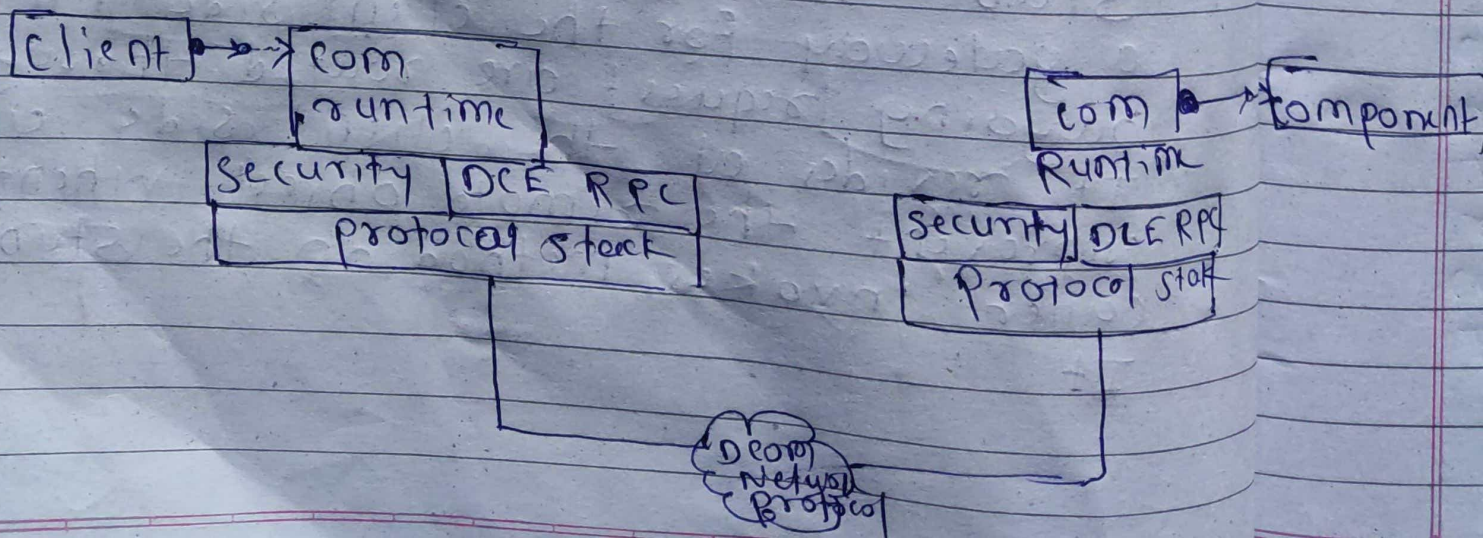 Client
com
runtime
Security
DCE RPC
protocol stack
com
Runtime
Component
Security
DCE RPC
Protocol stak
Dcom
Network
Protocol